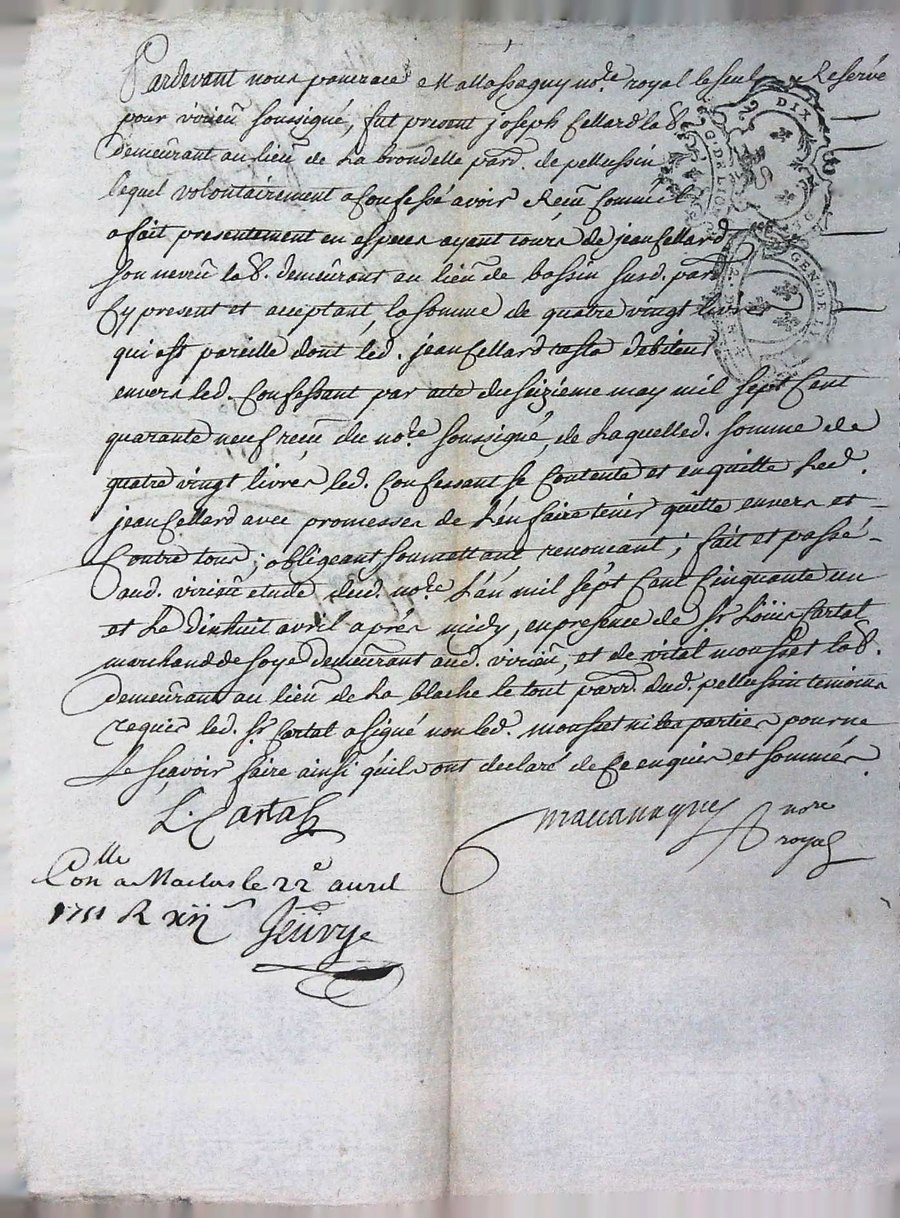 Pardevant nous pancrace Mallassagny no.re royal le seul Reservé
pour virieu soussigné, fut present joseph Cellard la8.
demeurant au lieu de La brondelle parr. de pellussin
lequel volontairement a confessé avoir Receu comme il
a fait presentement en especes ayant cours de jean Cellard
son neveu la8. demeurant au lieu de bassin susd. parr
Cy present et acceptant, la somme de quatre vingt livres
qui est pareille dont led. jean Cellard resta debiteur
envers led. Confessant par acte du seizieme may mil sept cent
quarante neuf receu du no.re soussigné, de Laquelled. somme de
quatre vingt livres led. Confessant se Contente et en quitte Led.
jean Cellard avec promesses de L'en faire tenir quitte envers et
Contre tous; obligeant soumettant renoncant; fait et passé
aud. virieu etude dud. no.re L'an mil sept Cent Cinquante un
et Le dixhuit avril aprés midy, en presence de Sr Loüis Cartal
marchand de soye demeurant aud. virieu, et de vital mousset la8.
demeurant au lieu de La blache le tout parr. dud. pellussin temoins
requis led. Sr Cartal a signé non led. mousset ni les parties pour ne
Le sçavoir faire ainsi qu'ils ont declaré de ce enquis et sommés.
L. Cartal
no.re
royal
Con.lle a Maclas le 22e avril
1751 R xii s
DIX
G. DE LION
GEN. DE LI
2.